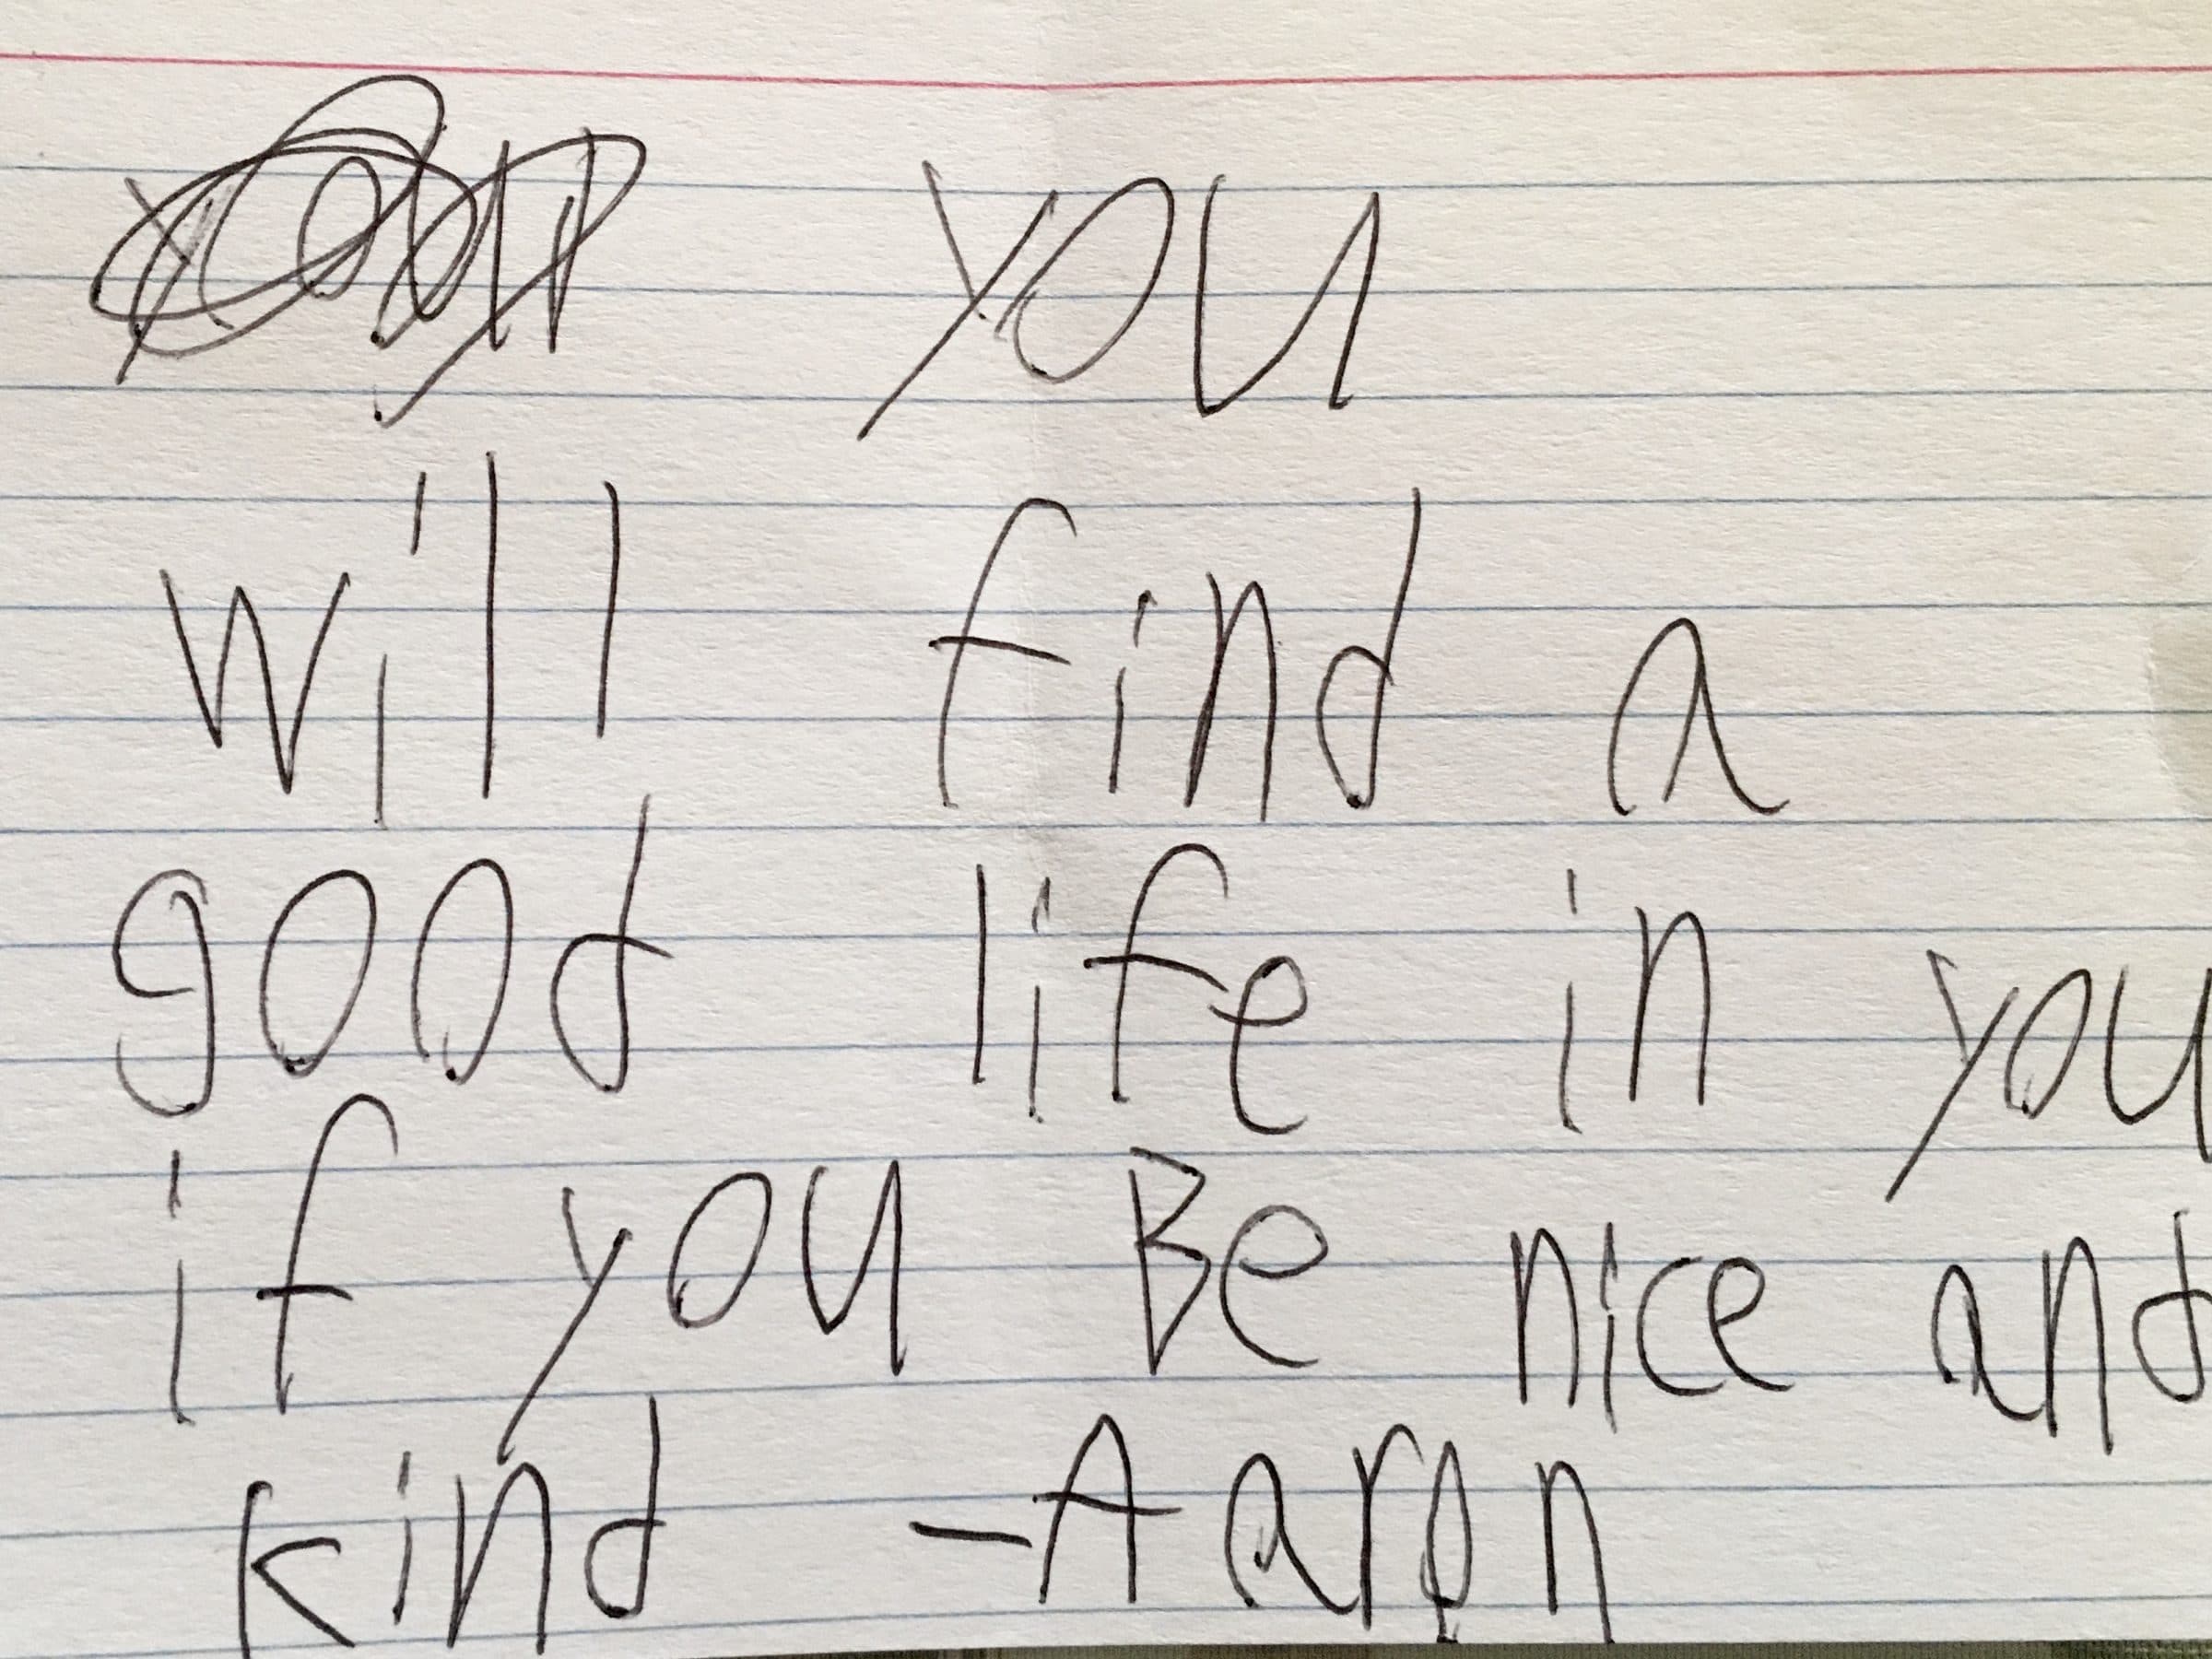 you
will find a
good life in you
if you Be nice and
kind -Aaron